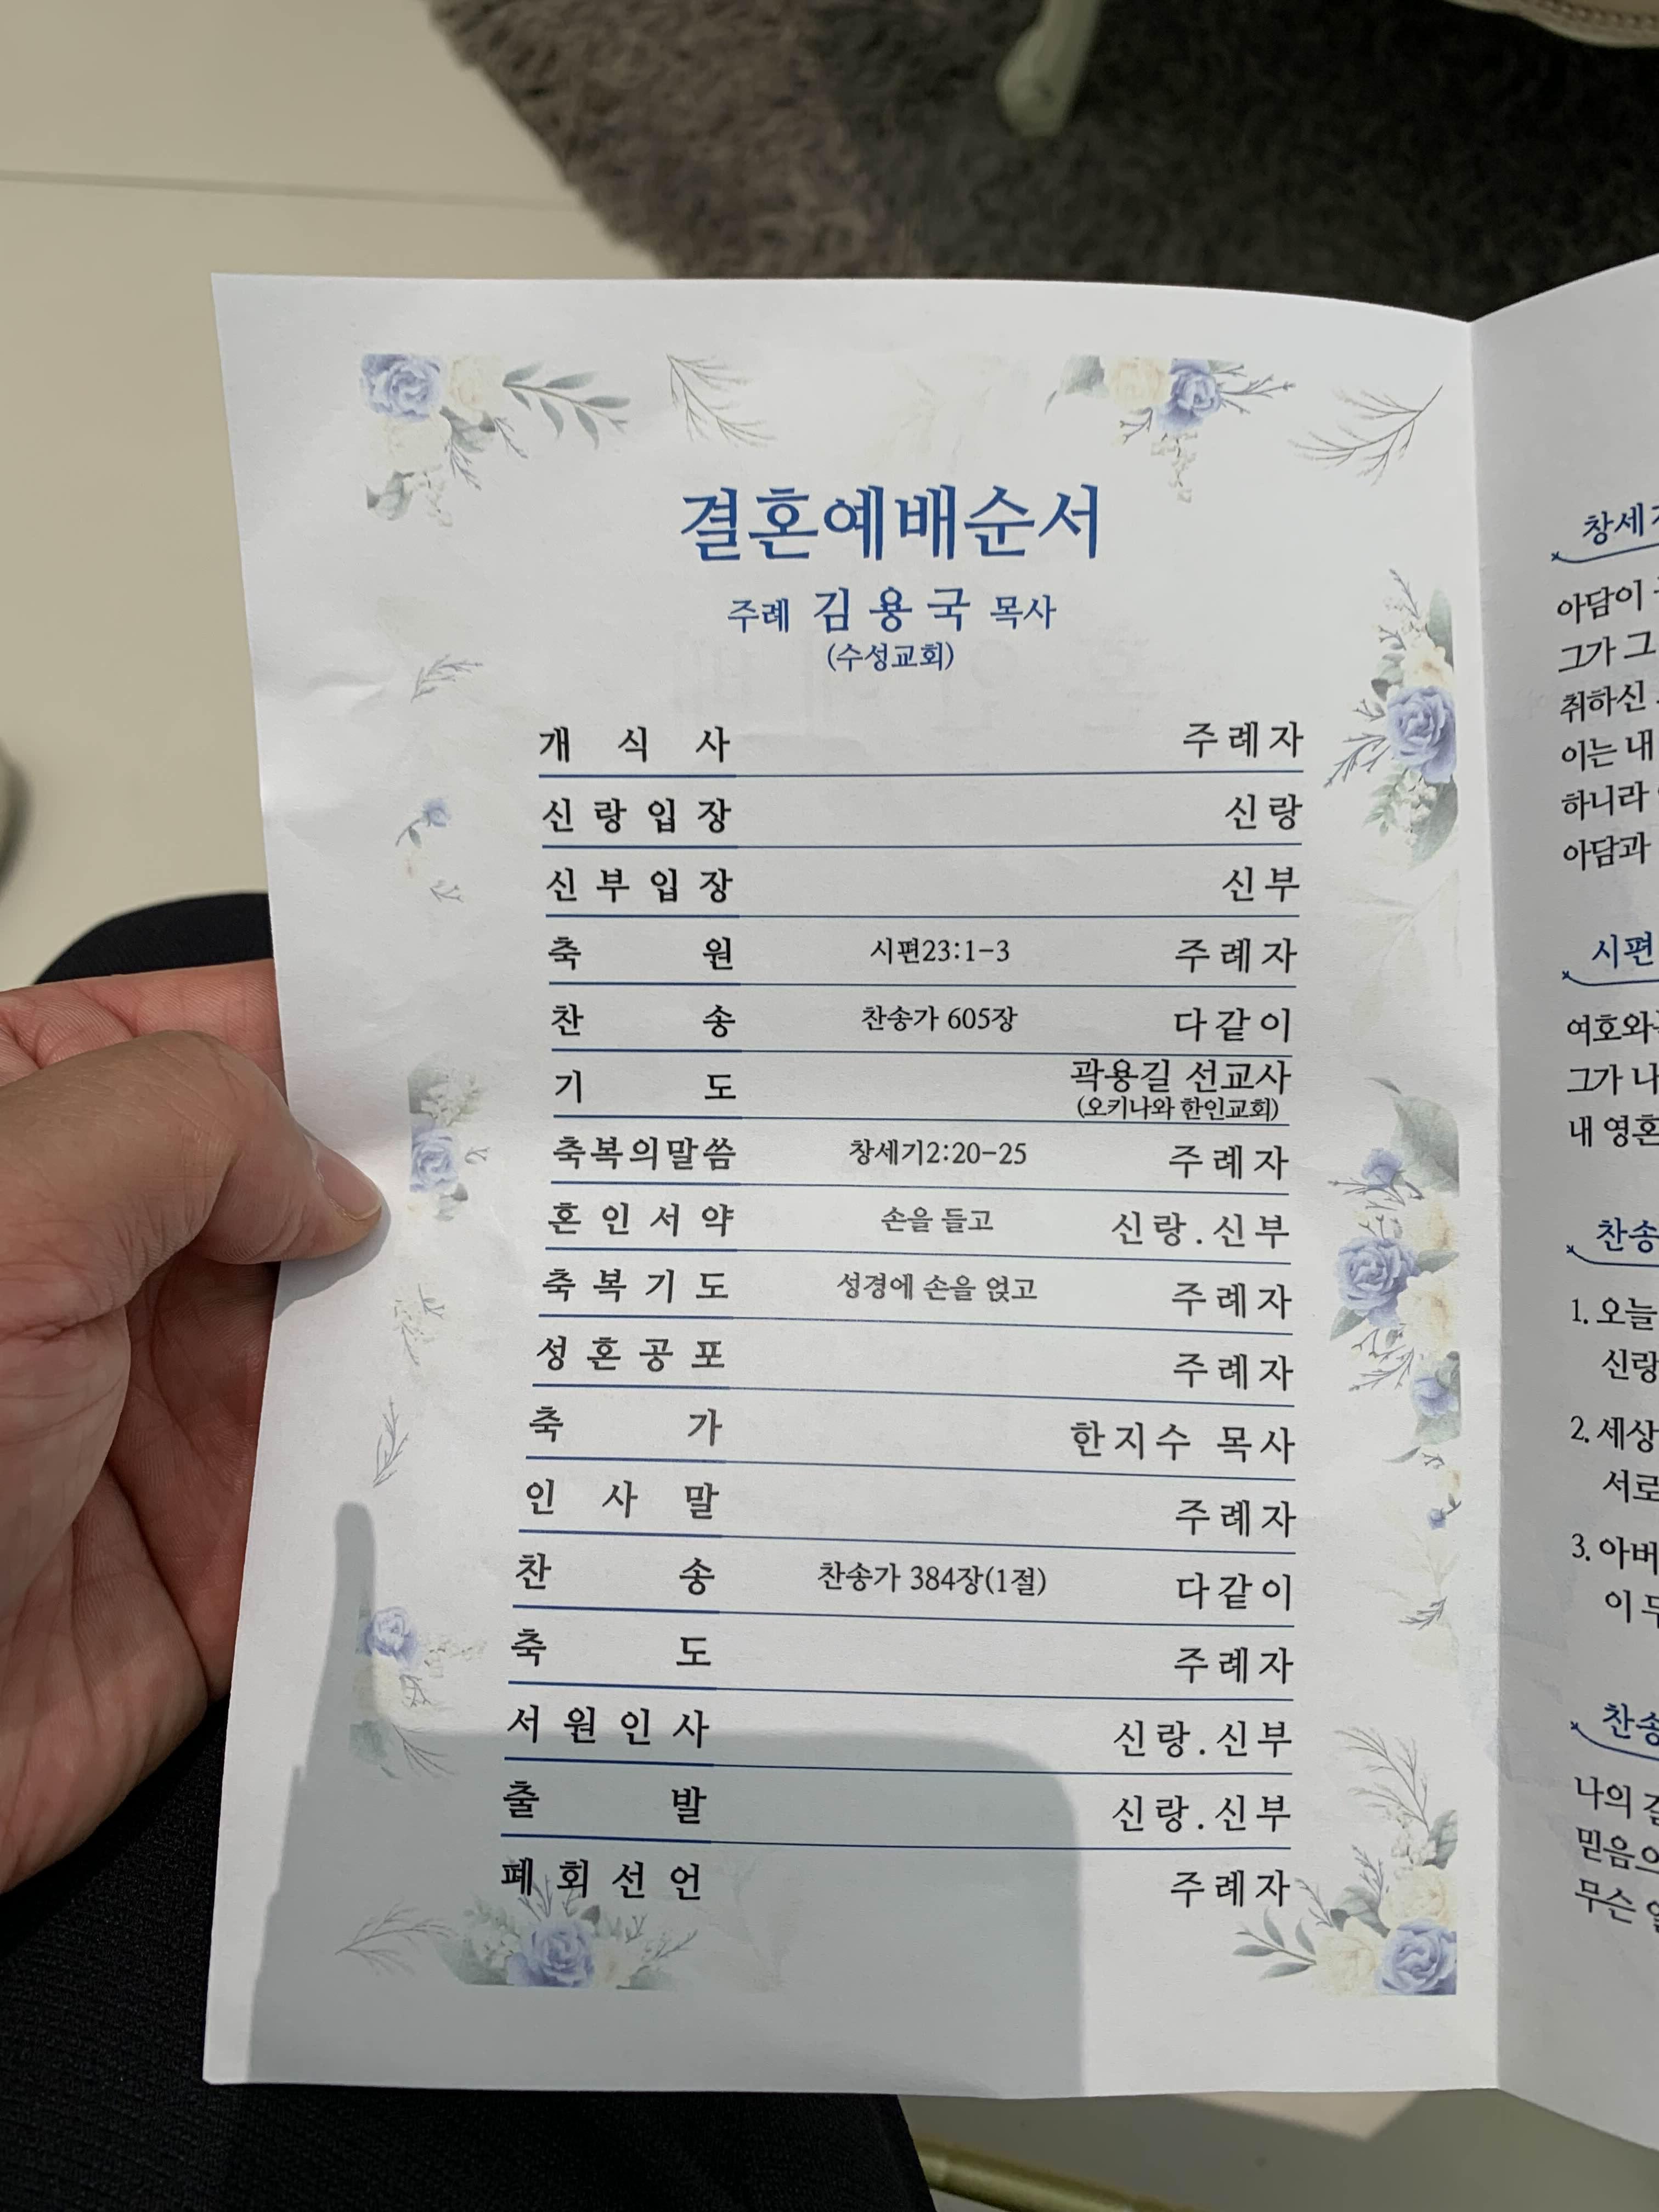 결혼예배순서
주례 김용국 목사
(수성교회)
개식사 주례자
신랑입장 신랑
신부입장 신부
축원 시편23:1-3 주례자
찬송 찬송가 605장 다같이
기도 곽용길 선교사
(오키나와 한인교회)
축복의말씀 창세기2:20-25 주례자
혼인서약 손을 들고 신랑.신부
축복기도 성경에 손을 얹고 주례자
성혼공포 주례자
축가 한지수 목사
인사말 주례자
찬송 찬송가 384장(1절) 다같이
축도 주례자
서원인사 신랑.신부
출발 신랑.신부
폐회선언 주례자
창세
아담이
그가 그
취하신
이는 내
하니라
아담과
시편
여호와
그가 나
내 영혼
찬송
1. 오늘
신랑
2. 세상
서로
3. 아버
이
찬송
나의
믿음으
무슨